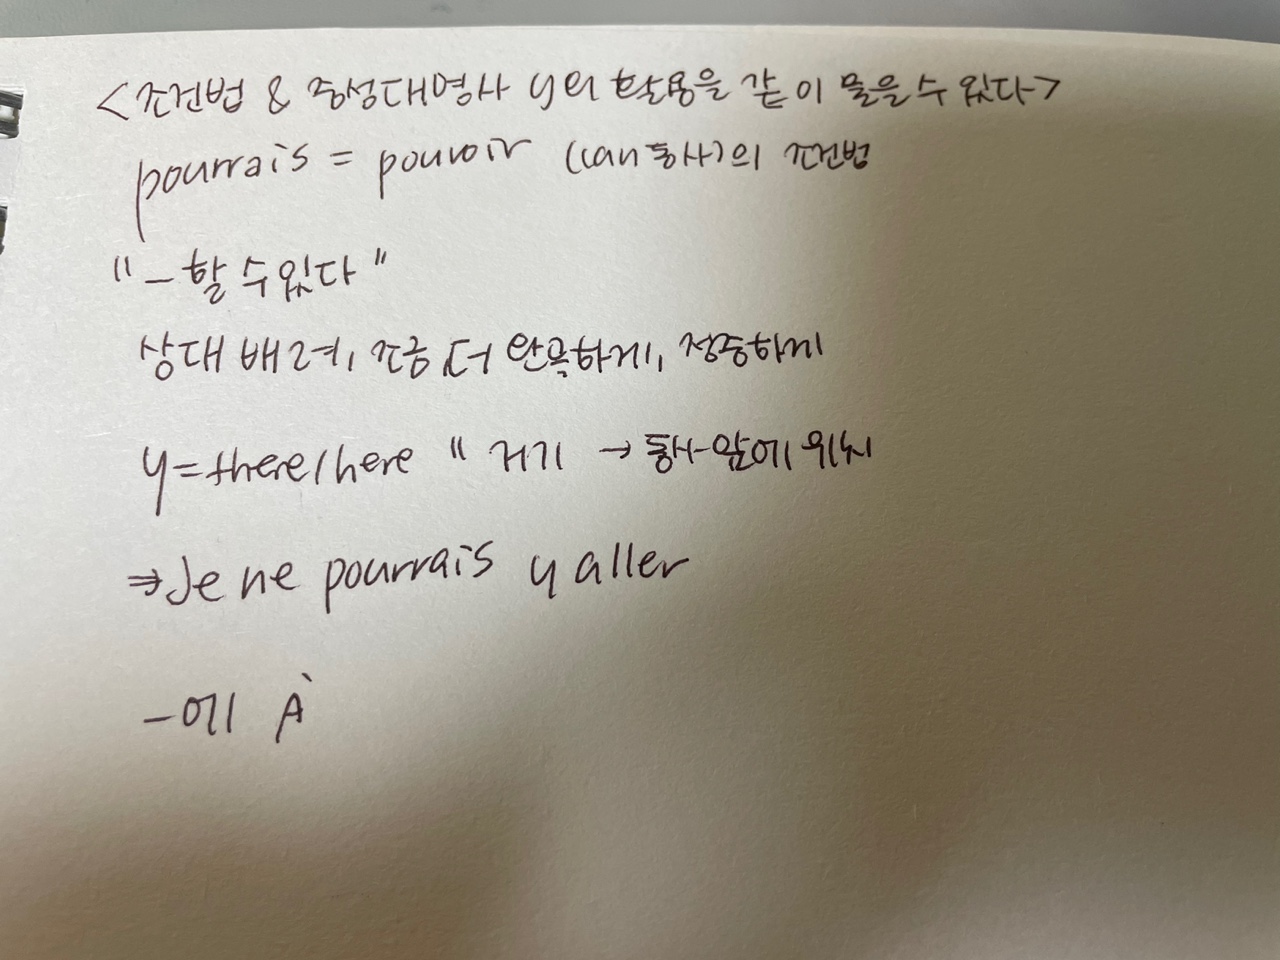 <조건법 & 중성대명사 y의 활용을 같이 물을 수 있다>
pourrais = pouvoir (can동사)의 조건법
"-할 수 있다"
상대 배려, 조금 더 완곡하게, 정중하게
y=there/here " 거기 → 동사 앞에 위치
⇒Je ne pourrais y aller
-에 À